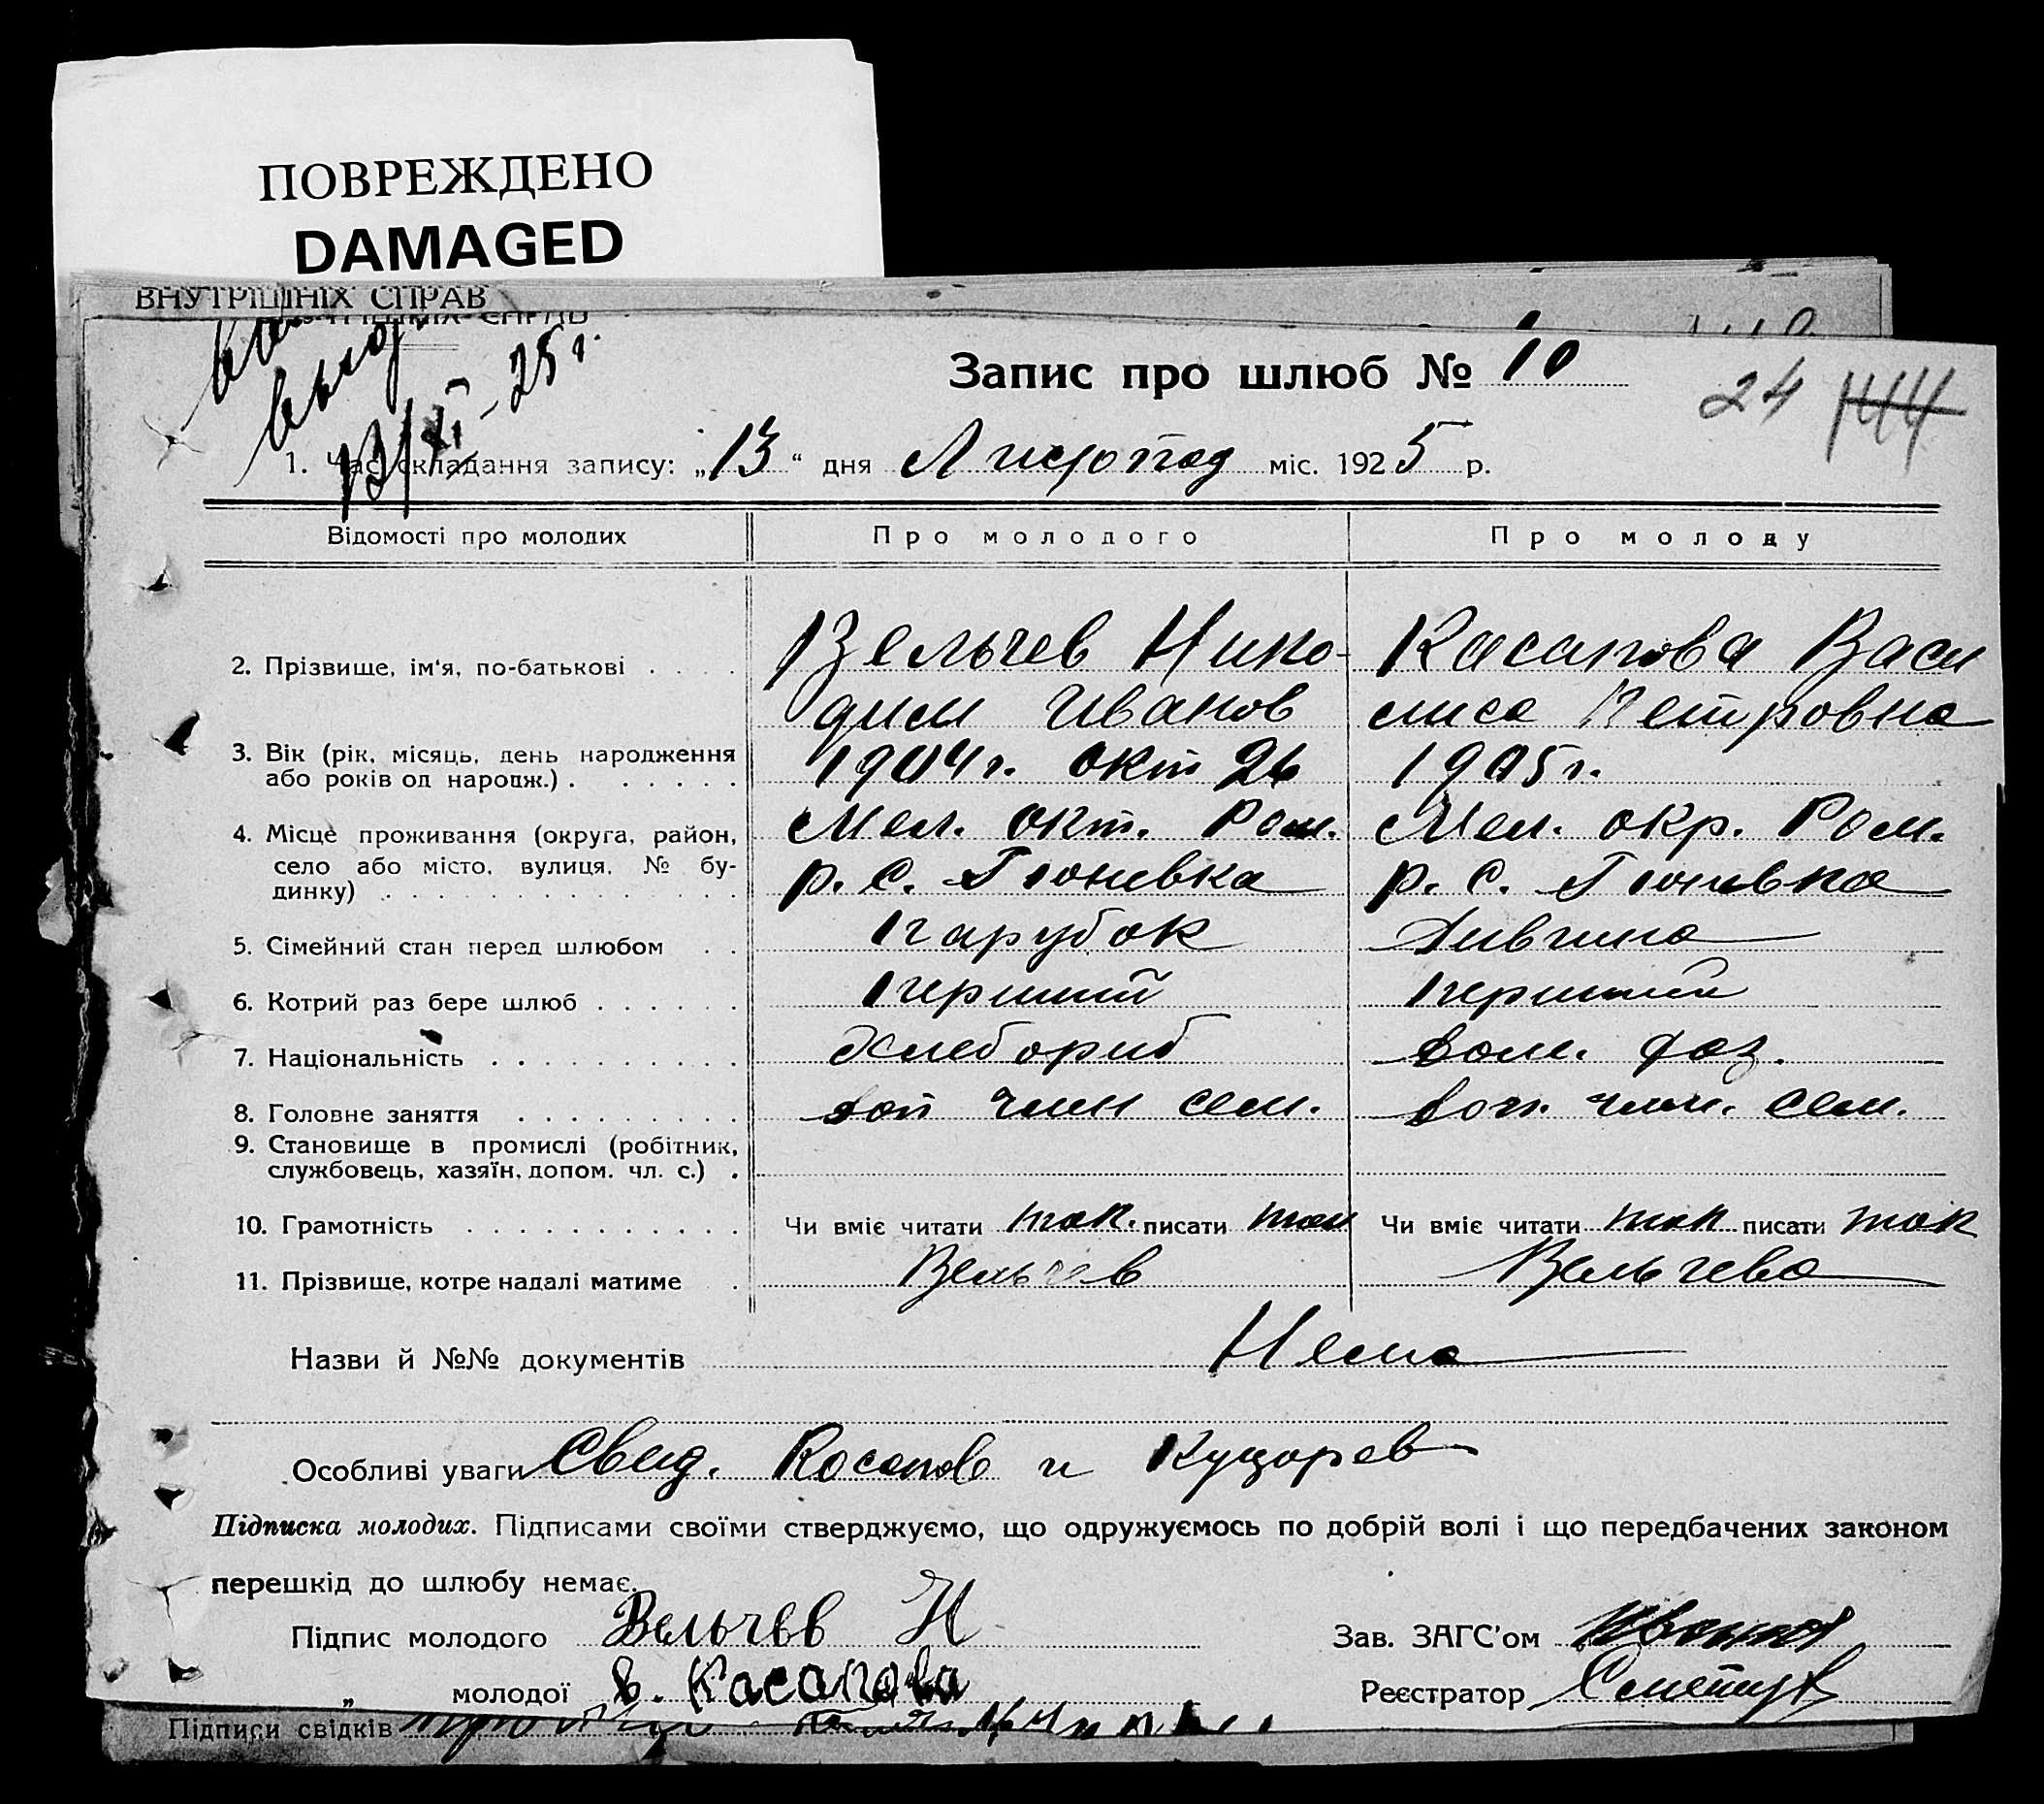 ПОВРЕЖДЕНО
DAMAGED
ВНУТРІШНІХ СПРАВ
13/XI-25г.
Запис про шлюб № 10
24 144
1. Час складання запису: „13“ дня Листопад міс. 1925 р.
Відомості про молодих Про молодого Про молоду
2. Прізвище, ім'я, по-батькові Вельчев Нико- Касапова Васи
дим Иванов лиса Петровна
3. Вік (рік, місяць, день народження 1904г. окт 26 1905г.
або років од народж.)
4. Місце проживання (округа, район, Мел. окт. Ром. Мел. окр. Ром.
село або місто, вулиця, № бу- р. с. Гюневка р. с. Гюневка
динку)
5. Сімейний стан перед шлюбом Парубок Дивчина
6. Котрий раз бере шлюб Перший Перший
7. Національність Хлебориб дом. хоз.
8. Головне заняття доп член сем. доп. член. сем.
9. Становище в промислі (робітник,
службовець, хазяїн, допом. чл. с.)
10. Грамотність Чи вміє читати так. писати так Чи вміє читати так писати так
11. Прізвище, котре надалі матиме Вельчев Вельчева
Назви й №№ документів Нема
Особливі уваги Свид. Косапов и Куцарев
Підписка молодих. Підписами своїми стверджуємо, що одружуємось по добрій волі і що передбачених законом
перешкід до шлюбу немає.
Підпис молодого Вельчев Н Зав. ЗАГС'ом
„ молодої В. Касапова Реєстратор
Підписи свідків